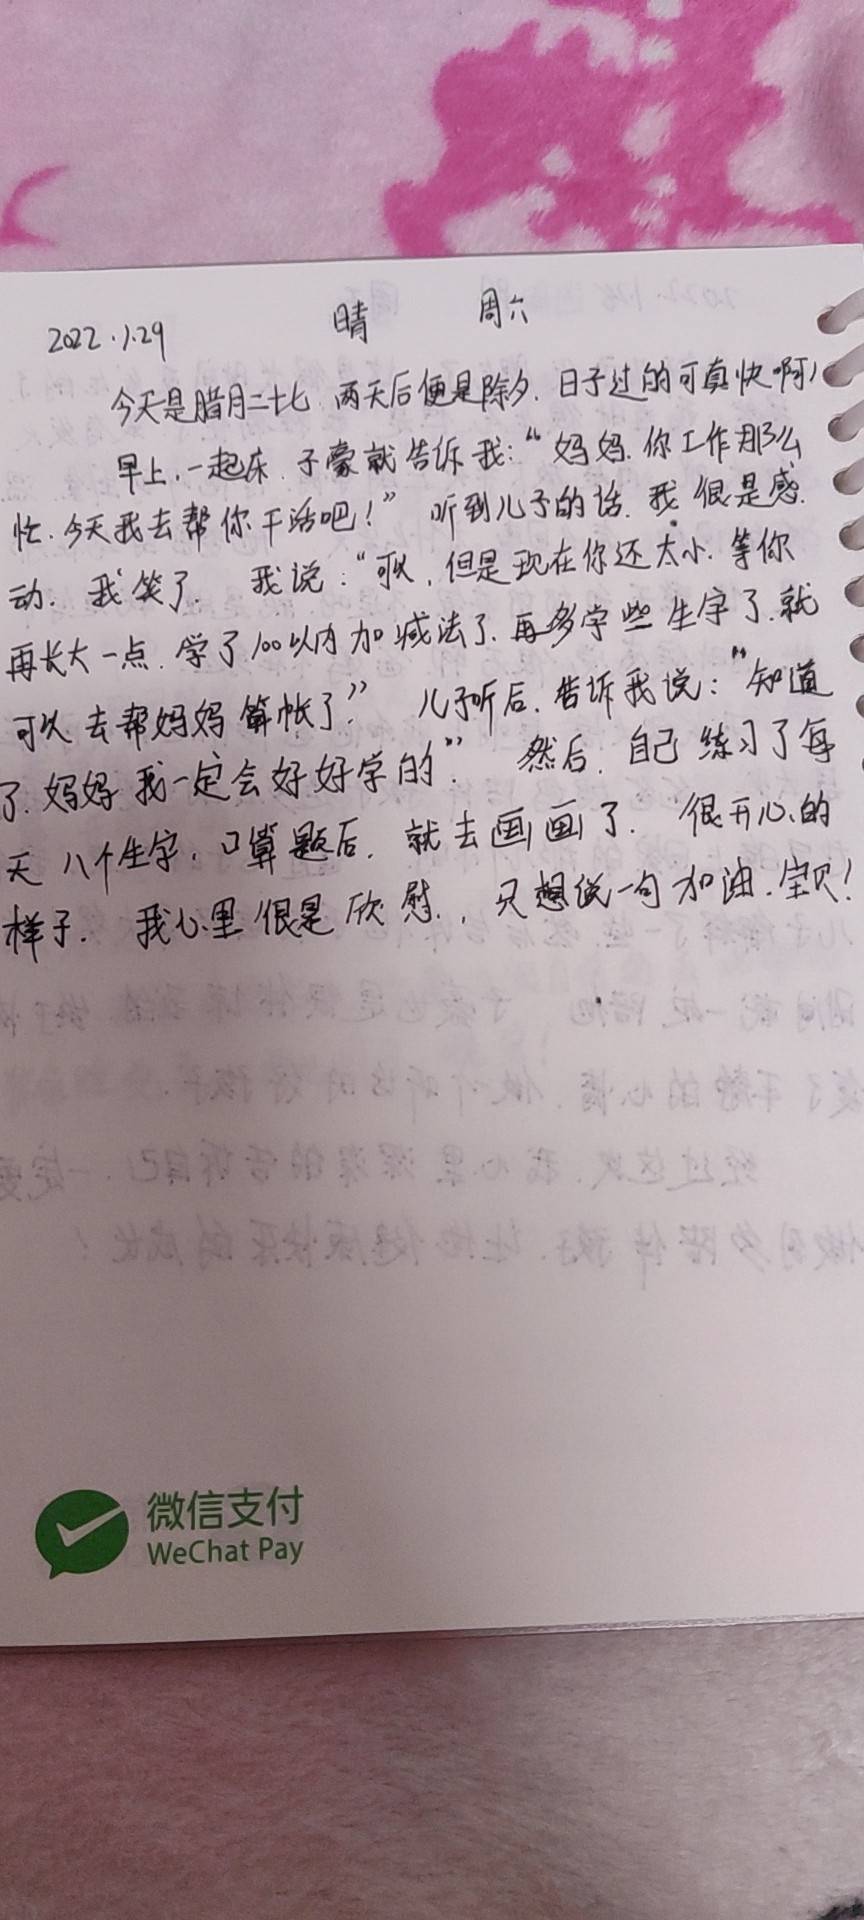 2022.1.29 晴 周六
今天是腊月二十七，两天后便是除夕.日子过的可真快啊！
早上.一起床.子豪就告诉我：“妈妈.你工作那么
忙.今天我去帮你干活吧！”听到儿子的话.我很是感
动.我笑了.我说：“可以，但是现在你还太小.等你
再长大一点.学了100以内加减法了.再多学些生字了.就
可以去帮妈妈算帐了.”儿子听后.告诉我说：“知道
了.妈妈我一定会好好学的”.然后.自己练习了每
天八个生字，口算题后.就去画画了.很开心的
样子.我心里很是欣慰.，只想说一句加油.宝贝！
微信支付
WeChat Pay